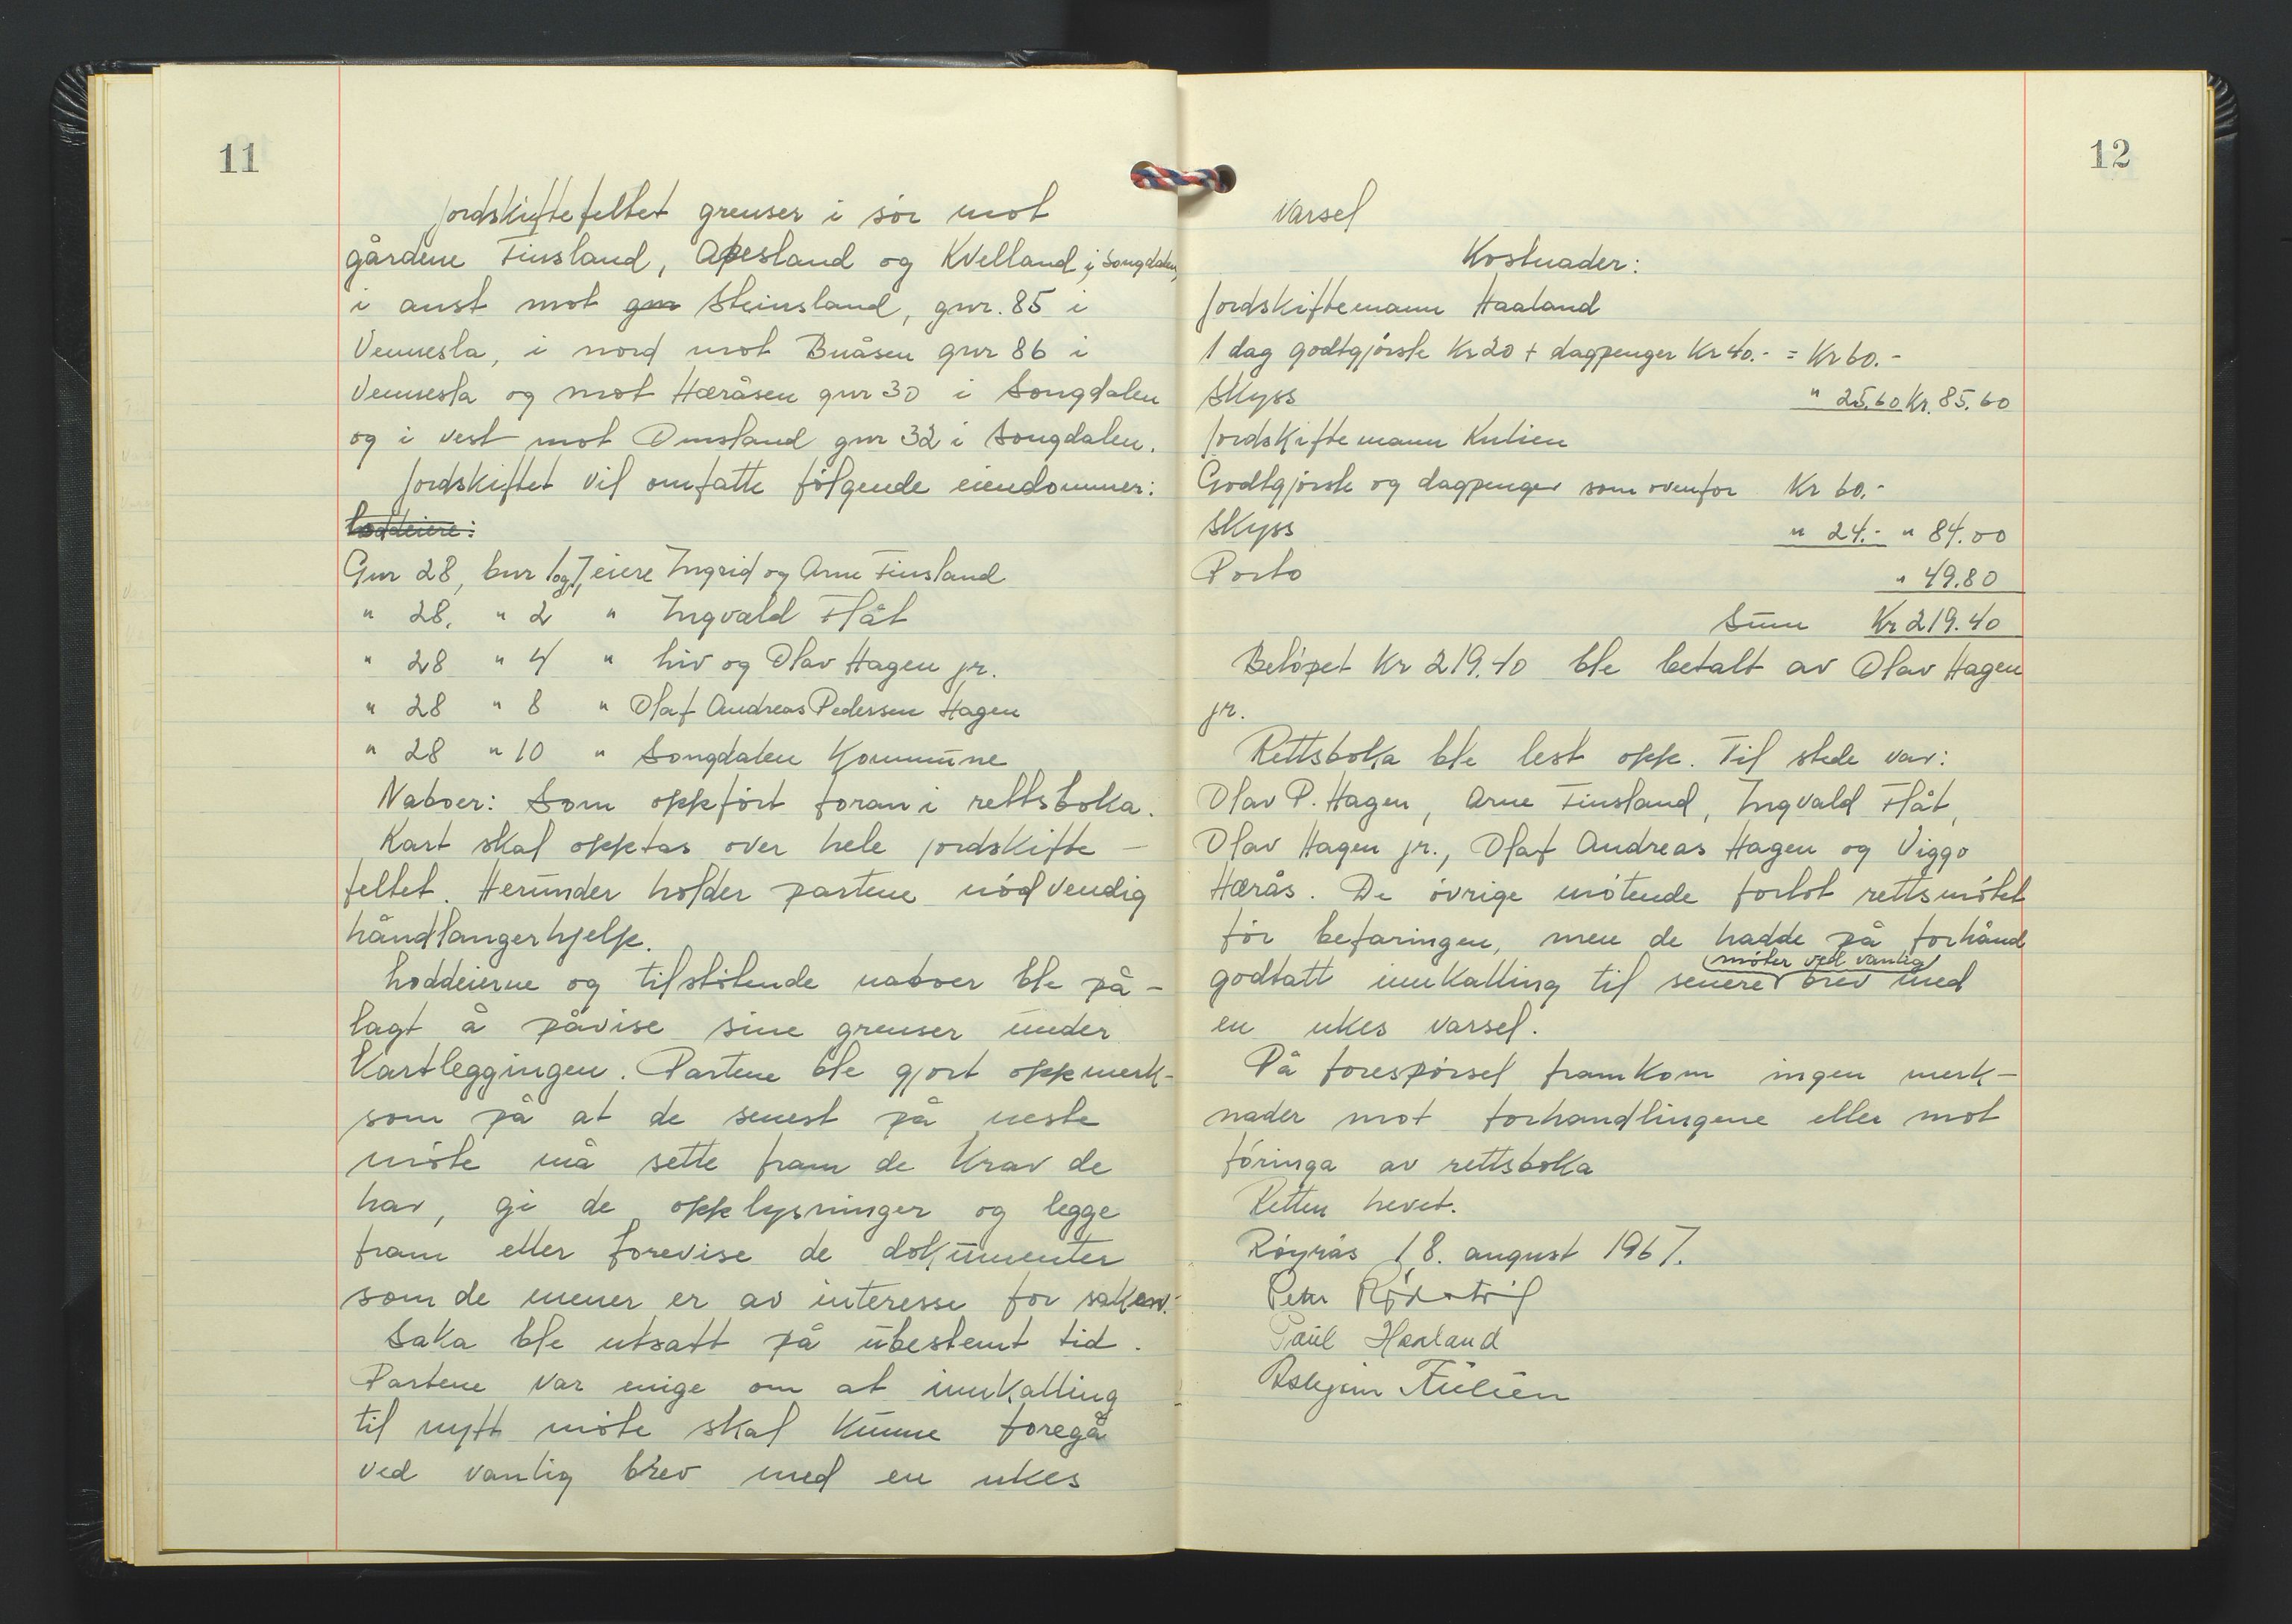 11
Jordskiftefeltet grenser i sør mot
gårdene Finsland, Apesland og Kvelland, i Songdalen,
i aust mot gnr Steinsland, gnr. 85 i
Vennesla, i nord mot Buåsen gnr 86 i
Vennesla og mot Hæråsen gnr 30 i Songdalen
og i vest mot Omsland gnr 32 i Songdalen.
Jordskiftet vil omfatte følgende eiendommer:
Loddeiere:
Gnr 28, bnr 1 og 7, eiere Ingrid og Arne Finsland
" 28, " 2 " Ingvald Flåt
" 28 " 4 " Liv og Olav Hagen jr.
" 28 " 8 " Olaf Andreas Pedersen Hagen
" 28 " 10 " Songdalen Kommune
Naboer: Som oppført foran i rettsboka.
Kart skal opptas over hele jordskifte-
feltet. Herunder holder partene nødvendig
håndlangerhjelp.
Loddeierne og tilstøtende naboer ble på-
lagt å påvise sine grenser under
kartleggingen. Partene ble gjort oppmerk-
som på at de senest på neste
møte må sette fram de krav de
har, gi de opplysninger og legge
fram eller forevise de dokumenter
som de mener er av interesse for saken.
Saka ble utsatt på ubestemt tid.
Partene var enige om at innkalling
til nytt møte skal kunne foregå
ved vanlig brev med en ukes
12
varsel
Kostnader:
Jordskiftemann Haaland
1 dag godtgjørsle Kr 20 + dagpenger Kr 40.- = Kr 60.-
Skyss " 25.60 Kr. 85.60
Jordskiftemann Kulien
Godtgjørsle og dagpenger som ovenfor Kr 60.-
Skyss " 24.- " 84.00
Porto " 49.80
Sum Kr 219.40
Beløpet Kr 219.40 ble betalt av Olav Hagen
jr.
Rettsboka ble lest opp. Til stede var:
Olav P. Hagen, Arne Finsland, Ingvald Flåt,
Olav Hagen jr., Olaf Andreas Hagen og Viggo
Hærås. De øvrige møtende forlot rettsmøtet
før befaringen, men de hadde på forhånd
møter ved vanlig
godtatt innkalling til senere brev med
en ukes varsel.
På forespørsel framkom ingen merk-
nader mot forhandlingene eller mot
føringa av rettsboka
Retten hevet.
Røyrås 18. august 1967.
Paul Haaland